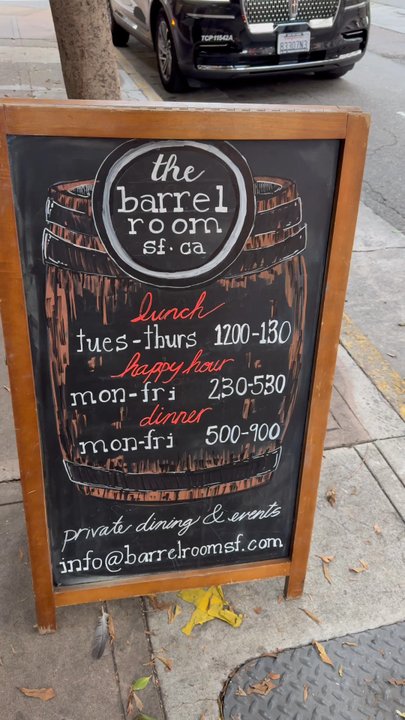 TCP11542A
the
barrel
room
sf. ca
lunch
tues-thurs 1200-130
happy hour
mon-fri 230-530
dinner
mon-fri 500-900
private dining & events
info@barrelroomsf.com